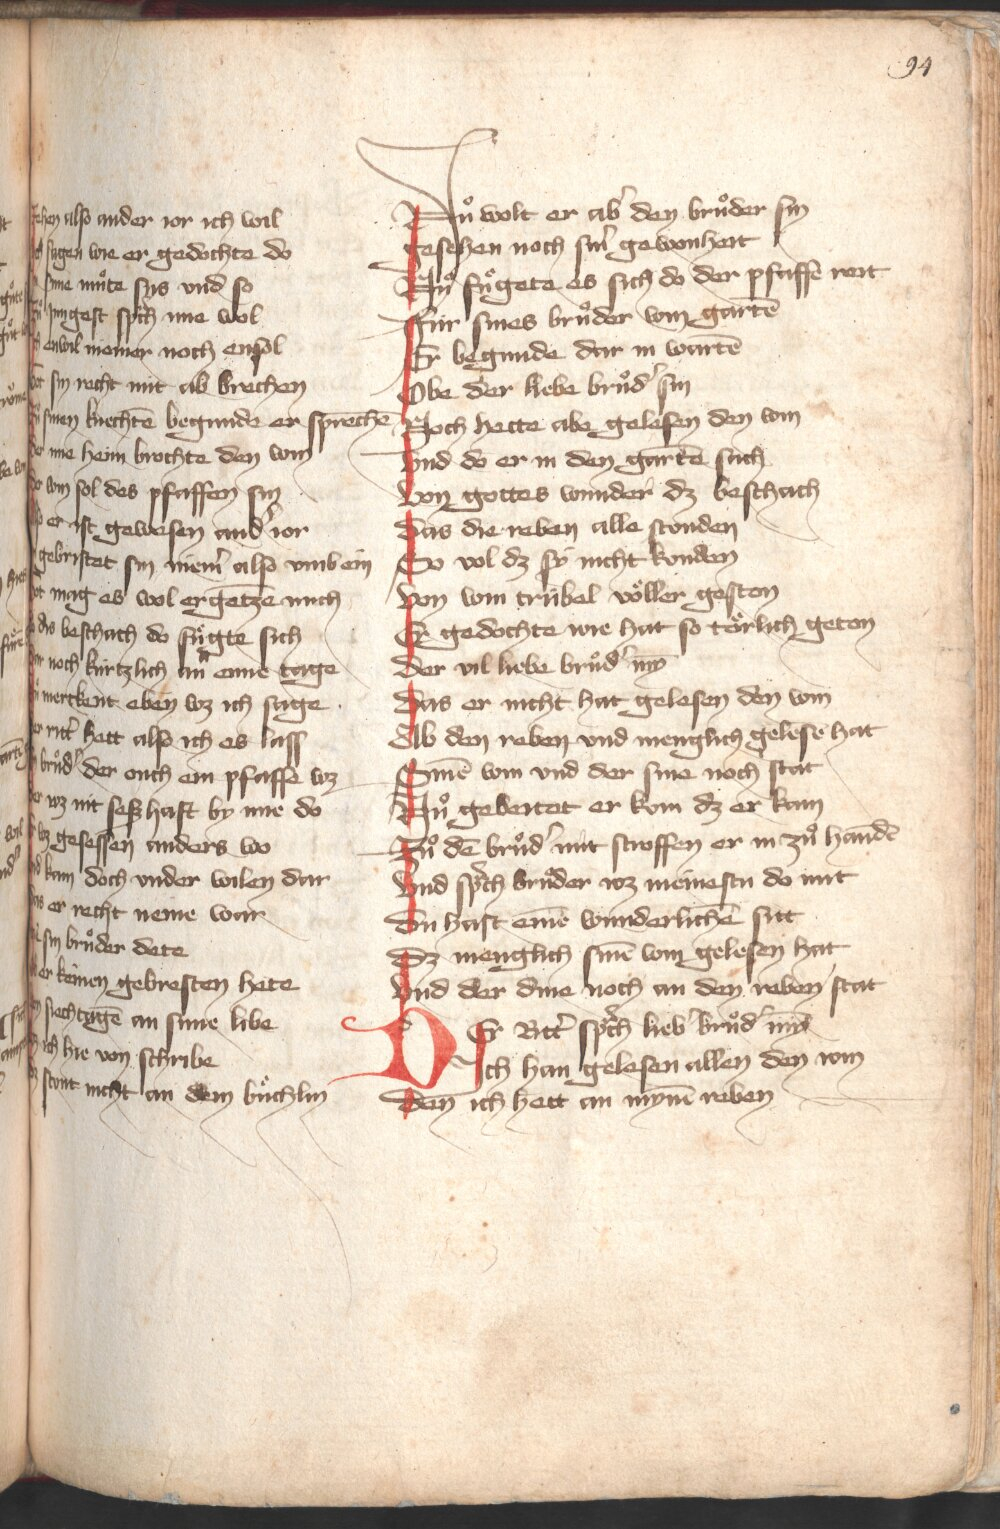 94
also ander ior ich wil
sagen wie er gedochte do
sine mu̍te sus vnd so
sp̄ch ime wol
enwil niemer noch ensol
sin recht nit ab brechen
sinen knechtē begunde er sprechē
ime heim brochte den win
win sol des pfaffen sin
er ist gewesen andˀ ior
gebristet sin niemˀ also vmb ein
mag es wol ergetzē mich
beschach do fügte sich
noch kürtzlich an einē tage
merckent eben wz ich sage
rittˀ hett also ich es lass
brůdˀ der ouch ein pfaffe wz
wz nit seszhaft by ime do
wz gesessen anders wo
kam doch vnder wilen dar
er recht neme war
sin brůder dete
er keinen gebresten hete
siechtagē an sime libe
ich hie von schribe
stont nicht an dem büchlin
Nů wolt er abˀ den brůder sin
gesehen noch sinˀ gewonheit
Nů fůgete es sich do der pfaffe reit
Für sines brůder win gartē
Er begunde dar in wartē
Obe der liebe brůdˀ sin
Noch hette abe gelesen den win
Vnd do er in den gartē sach
Von gottes wunder dz beschach
Das die reben alle stonden
So vol dz sÿ nicht konden
Von win trübel völler geston
Er gedochte wie hat so törlich geton
Der vil liebe brůdˀ min
Das er nicht hat gelesen den win
Ab den reben vnd menglich gelesē hat
Sinē win vnd der sine noch stat
Nů gebeitet er kom dz er kam
Zů dē brůdˀ mit stroffen er in zů handē
Vnd sp̄ch brůder wz meinestu do mit
Du hast einē wunderlichē sit
Dz menglich sinē win gelesen hat
Vnd der dine noch an den reben stat
DEr Rittˀ sp̄ch liebˀ brůdˀ min
Ich han gelesen allen den win
Den ich hett an mynē reben